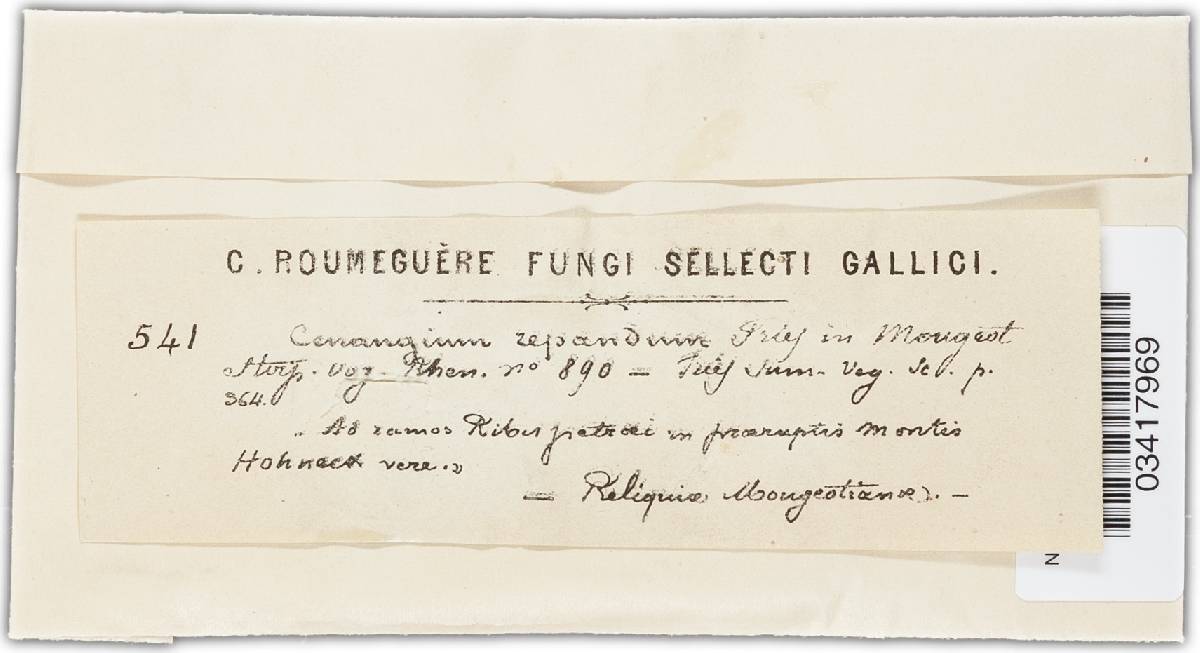 C. ROUMEGUÈRE FUNGI SELLECTI GALLICI.
541 Cenangium repandum Fries in Mougeot
Stirp. Vog. Rhen. no 890 — Fries Sum. Veg. Sc. p.
364.
" Ad ramos Ribis petraei in præruptis montis
Hohneck vere. "
— Reliquiæ Mougeotianæ. —
03417969
N